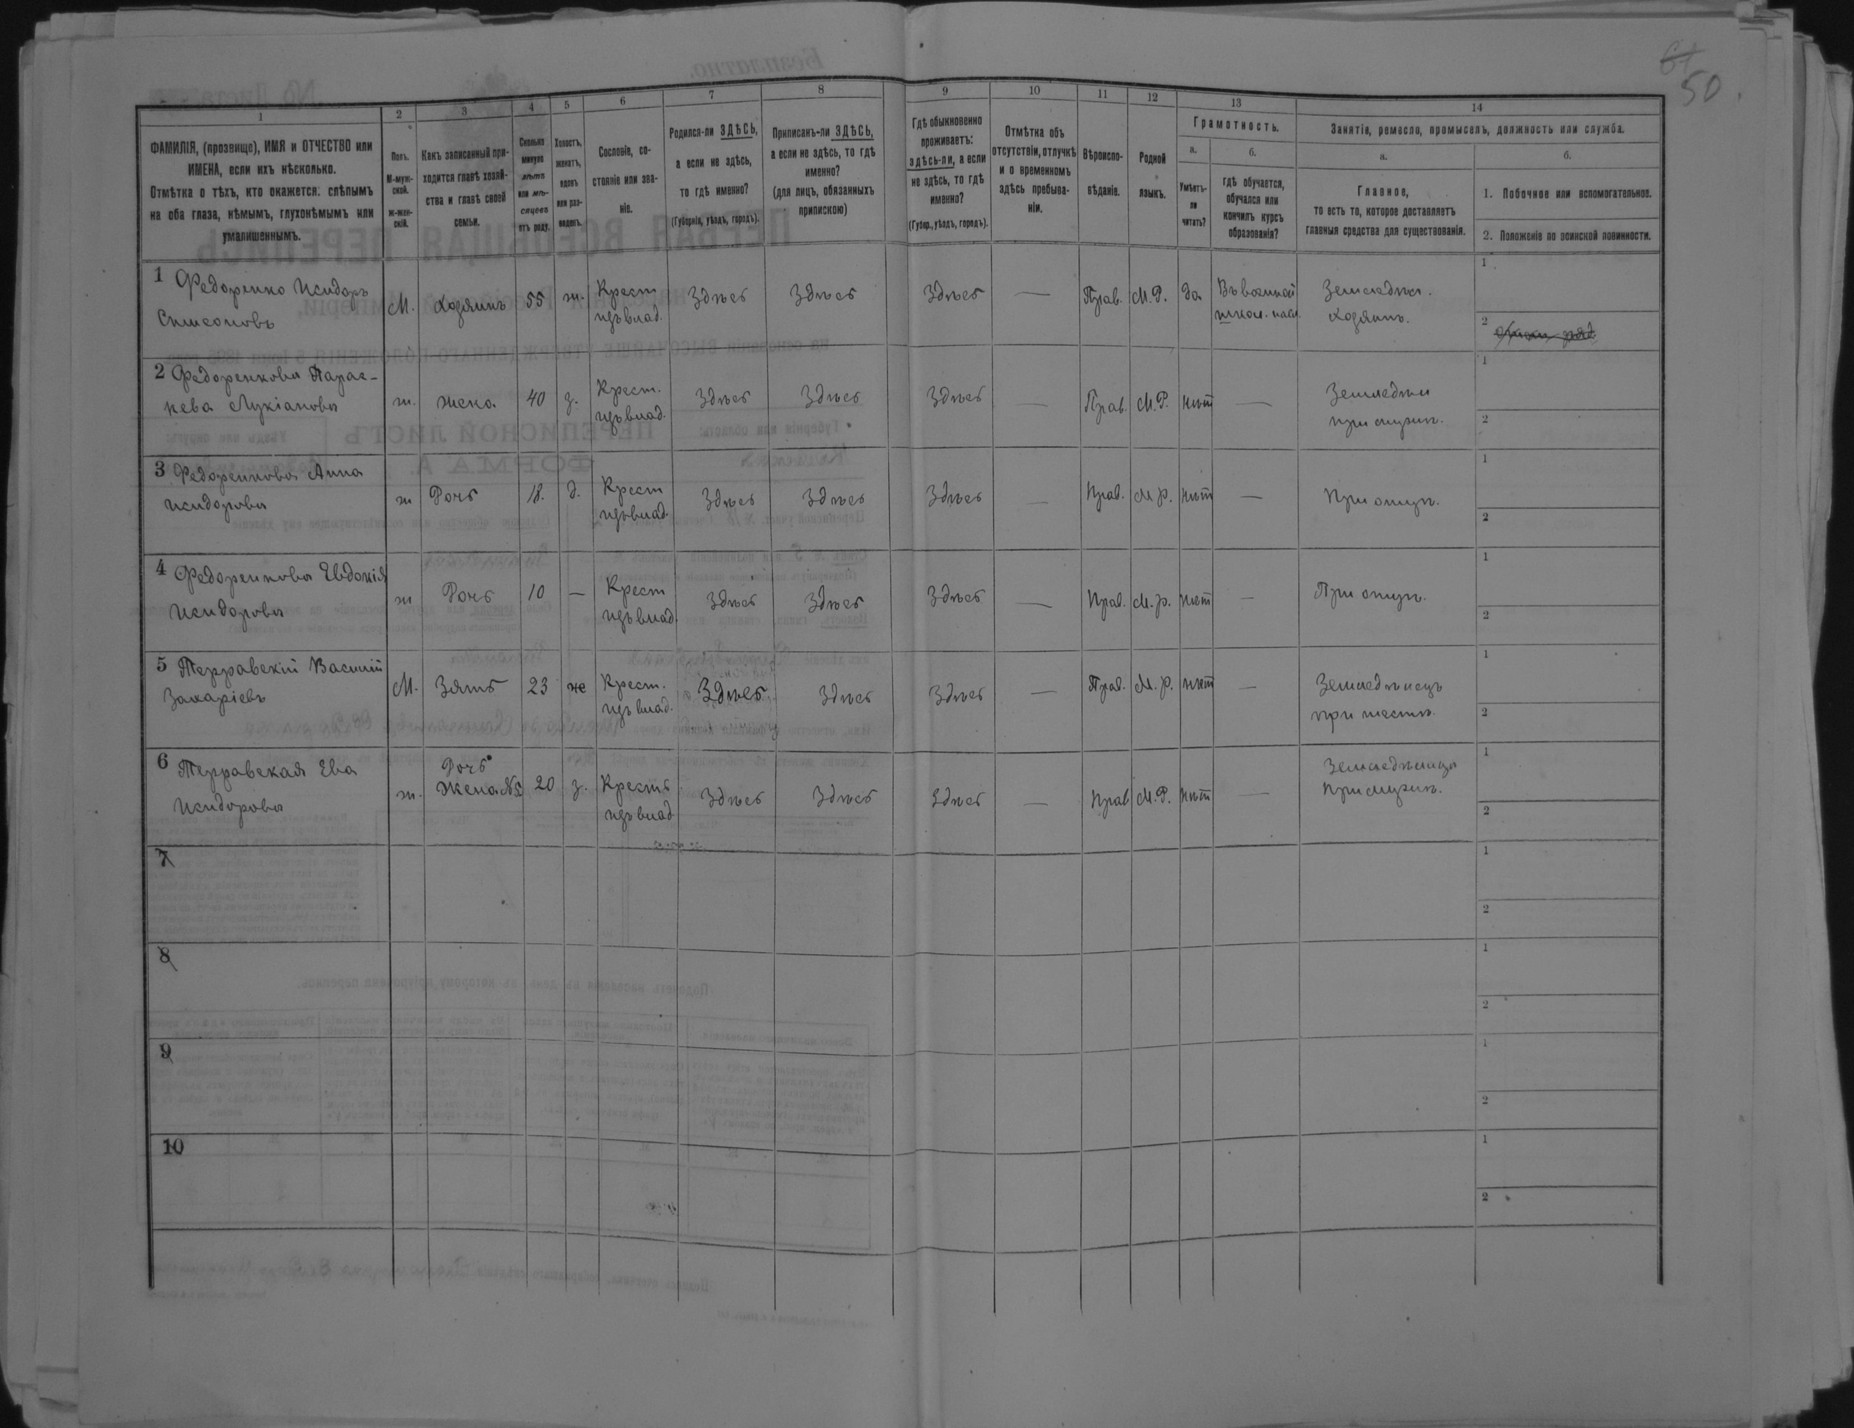 61
50.
1 2 3 4 5 6 7 8 9 10 11 12 13 14
ФАМИЛІЯ, (прозвище), ИМЯ и ОТЧЕСТВО или
ИМЕНА, если ихъ нѣсколько.
Отмѣтка о тѣхъ, кто окажется: слѣпымъ
на оба глаза, нѣмымъ, глухонѣмымъ или
умалишеннымъ.
Полъ.
М-муж-
ской.
ж-жен-
скій.
Какъ записанный при-
ходится главѣ хозяй-
ства и главѣ своей
семьи.
Сколько
минуло
лѣтъ
или мѣ-
сяцевъ
отъ роду.
Холостъ,
женатъ,
вдовъ
или раз-
веденъ.
Сословіе, со-
стояніе или зва-
ніе.
Родился-ли ЗДѢСЬ,
а если не здѣсь,
то гдѣ именно?
(Губернія, уѣздъ, городъ).
Приписанъ-ли ЗДѢСЬ,
а если не здѣсь, то гдѣ
именно?
(для лицъ, обязанныхъ
припискою)
Гдѣ обыкновенно
проживаетъ:
здѣсь-ли, а если
не здѣсь, то гдѣ
именно?
(Губер., уѣздъ, городъ).
Отмѣтка объ
отсутствіи, отлучкѣ
и о временномъ
здѣсь пребыва-
ніи.
Вѣроиспо-
вѣданіе.
Родной
языкъ.
Грамотность.
а.
Умѣетъ-
ли
читать?
б.
гдѣ обучается,
обучался или
кончилъ курсъ
образованія?
Занятіе, ремесло, промыселъ, должность или служба.
а.
Главное,
то есть то, которое доставляетъ
главныя средства для существованія.
б.
1. Побочное или вспомогательное.
2. Положеніе по воинской повинности.
1 Федоренко Исидоръ
Симеоновъ
М. Хозяинъ 55 ж. Крест
изъ влад. Здѣсь Здѣсь Здѣсь — Прав. М.Р. да Въ военной
школ. Земледѣл.
хозяинъ.
1
2
2 Федоренкова Парас-
кева Лукіанова
ж. жена 40 з. Крест.
изъ влад. Здѣсь Здѣсь Здѣсь — Прав. М.Р. нѣтъ — Земледѣл
при мужѣ.
1
2
3 Федоренкова Анна
Исидорова
ж Дочь 18. д. Крест
изъ влад. Здѣсь Здѣсь Здѣсь — Прав. М.р. нѣтъ — При отцѣ.
1
2
4 Федоренкова Евдокія
Исидорова
ж Дочь 10 — Крест
изъ влад. Здѣсь Здѣсь Здѣсь — Прав. М.р. нѣтъ — При отцѣ.
1
2
5 Терравскій Василій
Захаріевъ
М. Зять 23 же Крест.
изъ влад. Здѣсь Здѣсь Здѣсь — Прав. М.р. нѣтъ — Земледѣлецъ
при тестѣ.
1
2
6 Терравская Ева
Исидорова
ж. Дочь
Жена №5 20 з. Крестъ
изъ влад Здѣсь Здѣсь Здѣсь — Прав М.Р. нѣтъ — Земледѣлица
при мужѣ.
1
2
7
1
2
8
1
2
9
1
2
10
1
2